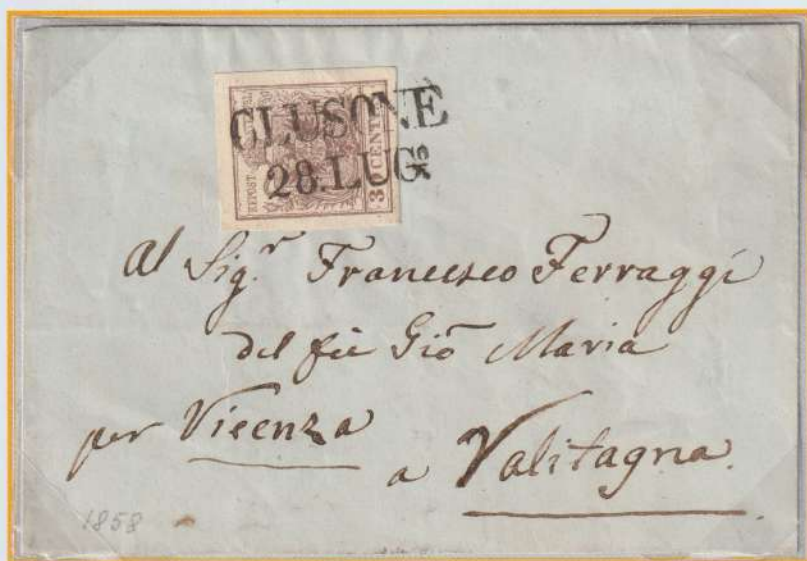 CLUSONE
28.LUG.
CENTES
3
Al Sig.r Francesco Ferraggi
del fù Gio Maria
per Vicenza
a Valstagna.
1858